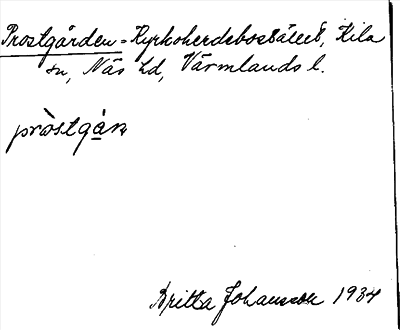 Prostgården = Kyrkoherdebostället, Kila
sn, Näs hd, Värmlands l.
pròstgá̱ṇ
Britta Johansson 1934